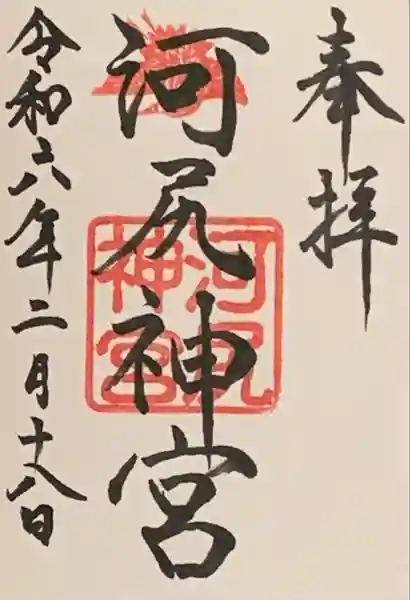 奉拝
河尻神宮
河尻神宮
令和六年二月十八日